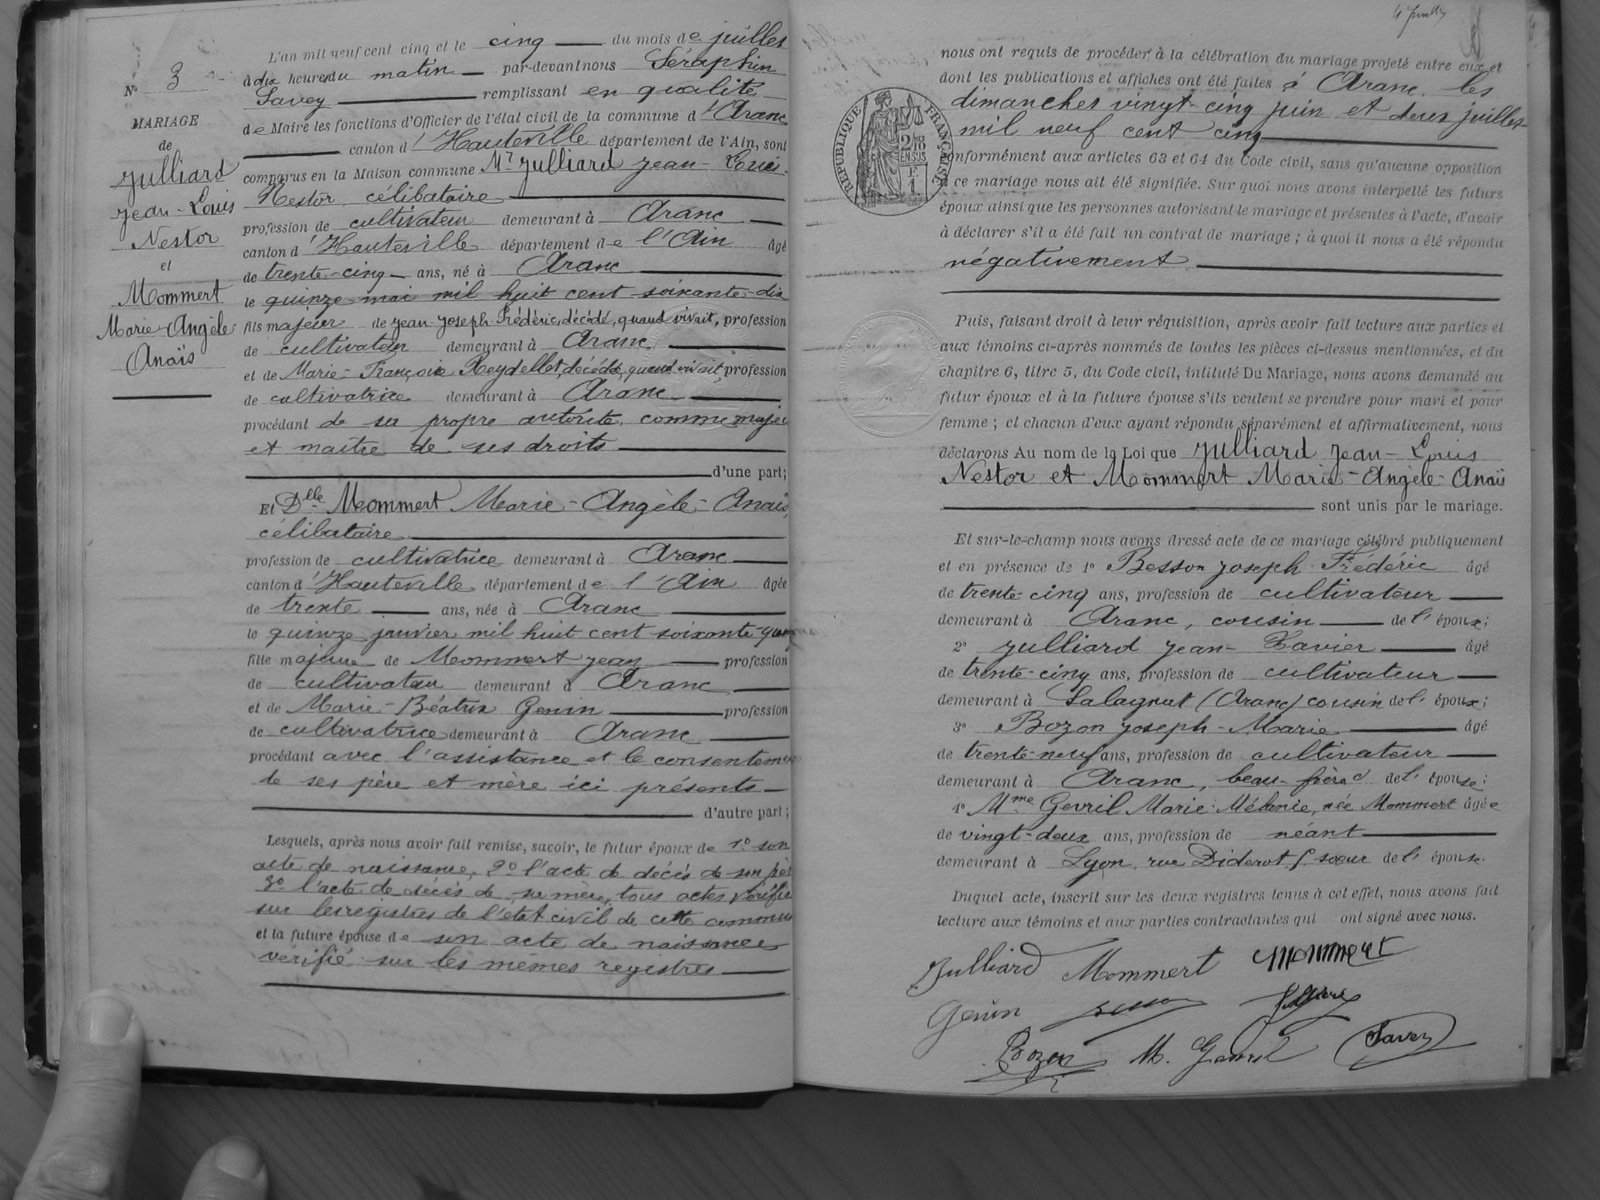 L'an mil neuf cent cinq et le cinq du mois de juillet
à dix heures du matin par-devant nous Séraphin
Savey remplissant en qualité
de Maire les fonctions d'Officier de l'état civil de la commune d'Aranc
canton d'Hauteville département de l'Ain, sont
comparus en la Maison commune Mr Julliard Jean-Louis-
Nestor célibataire
profession de cultivateur demeurant à Aranc
canton d'Hauteville département de l'Ain âgé
de trente-cinq ans, né à Aranc
le quinze mai mil huit cent soixante-dix
fils majeur de Jean Joseph Frédéric, décédé, quand vivait, profession
de cultivateur demeurant à Aranc
et de Marie-Françoise Reydellet, décédée, quand vivait, profession
de cultivatrice demeurant à Aranc
procédant de sa propre autorité comme majeur
et maître de ses droits
d'une part;
Et Dlle Mommert Marie-Angèle-Anaïs,
célibataire
profession de cultivatrice demeurant à Aranc
canton d'Hauteville département de l'Ain âgée
de trente ans, née à Aranc
le quinze janvier mil huit cent soixante-
fille majeure de Mommert Jean profession
de cultivateur demeurant à Aranc
et de Marie-Béatrix Genin profession
de cultivatrice demeurant à Aranc
procédant avec l'assistance et le consentement
de ses père et mère ici présents
d'autre part;
Lesquels, après nous avoir fait remise, savoir, le futur époux de 1º son
acte de naissance, 2º l'acte de décès de son père
3º l'acte de décès de sa mère, tous actes vérifiés
sur les registres de l'état civil de cette commune
et la future épouse de son acte de naissance
vérifié sur les mêmes registres
Nº 3
MARIAGE
de
Julliard
Jean-Louis
Nestor
et
Mommert
Marie-Angèle
Anaïs
nous ont requis de procéder à la célébration du mariage projeté entre eux et
dont les publications et affiches ont été faites à Aranc les
dimanches vingt-cinq juin et deux juillet
mil neuf cent cinq
conformément aux articles 63 et 64 du Code civil, sans qu'aucune opposition
à ce mariage nous ait été signifiée. Sur quoi nous avons interpellé les futurs
époux ainsi que les personnes autorisant le mariage et présentes à l'acte, d'avoir
à déclarer s'il a été fait un contrat de mariage ; à quoi il nous a été répondu
négativement
Puis, faisant droit à leur réquisition, après avoir fait lecture aux parties et
aux témoins ci-après nommés de toutes les pièces ci-dessus mentionnées, et du
chapitre 6, titre 5, du Code civil, intitulé Du Mariage, nous avons demandé au
futur époux et à la future épouse s'ils veulent se prendre pour mari et pour
femme ; et chacun d'eux ayant répondu séparément et affirmativement, nous
déclarons Au nom de la Loi que Julliard Jean-Louis
Nestor et Mommert Marie-Angèle-Anaïs
sont unis par le mariage.
Et sur-le-champ nous avons dressé acte de ce mariage célébré publiquement
et en présence de 1º Besson Joseph Frédéric âgé
de trente-cinq ans, profession de cultivateur
demeurant à Aranc, cousin de l'époux;
2º Julliard Jean-Xavier âgé
de trente-cinq ans, profession de cultivateur
demeurant à (Aranc) cousin de l'époux;
3º Bozon Joseph-Marie âgé
de trente-neuf ans, profession de cultivateur
demeurant à Aranc, beau-frère de l'épouse;
4º Mme Gevril Marie-Mélanie, née Mommert âgée
de vingt-deux ans, profession de néant
demeurant à Lyon, rue Diderot soeur de l'épouse.
Duquel acte, inscrit sur les deux registres tenus à cet effet, nous avons fait
lecture aux témoins et aux parties contractantes qui ont signé avec nous.
Julliard Mommert Mommert
Genin Besson
Bozon M. Gevril Savey
RÉPUBLIQUE FRANÇAISE